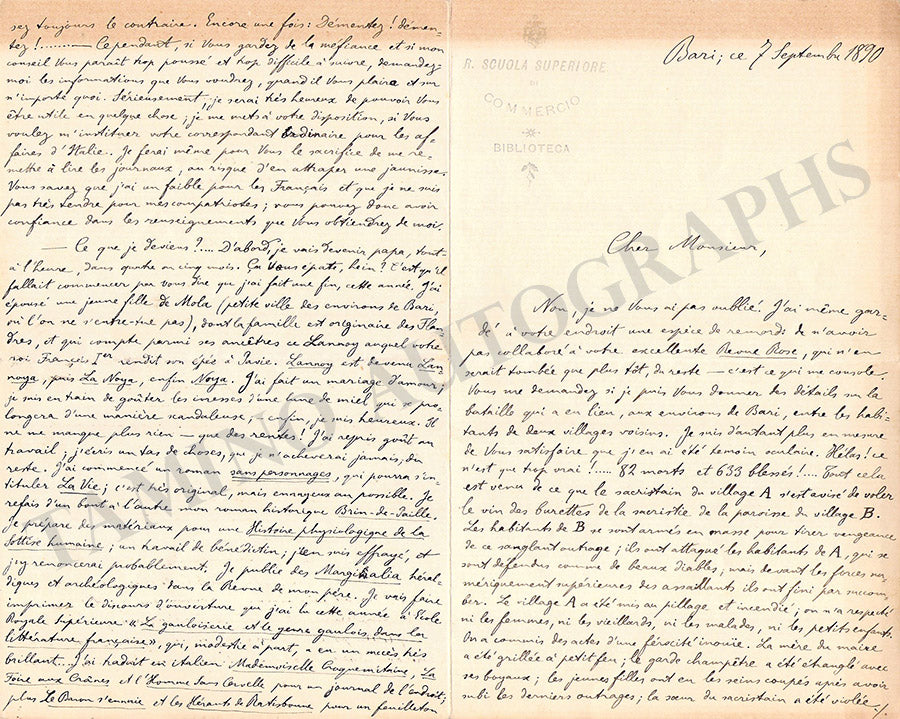 Bari, ce 7 Septembre 1890
R. SCUOLA SUPERIORE
DI
COMMERCIO
BIBLIOTECA
Cher Monsieur,
Non, je ne Vous ai pas oublié. J'ai même gar-
dé à votre endroit une espèce de remords de n'avoir
pas collaboré à votre excellente Revue Rose, qui n'en
serait tombée que plus tôt du reste — c'est ce qui me console.
Vous me demandez si je puis Vous donner des détails sur la
bataille qui a eu lieu, aux environs de Bari, entre les habi-
tants de deux villages voisins. Je suis d'autant plus en mesure
de Vous satisfaire que j'en ai été témoin oculaire. Hélas! ce
n'est que trop vrai!..... 82 morts et 633 blessés!..... Tout cela
est venu de ce que le sacristain du village A s'est avisé de voler
le vin des burettes de la sacristie de la paroisse du village B.
Les habitants de B se sont armés en masse pour tirer vengeance
de ce sanglant outrage; ils ont attaqué les habitants de A, qui se
sont défendus comme de beaux diables; mais devant les forces nu-
mériquement supérieures des assaillants ils ont fini par succom-
ber. Le village A a été mis au pillage et incendié; on n'a respecté
ni les femmes, ni les vieillards, ni les malades, ni les petits enfants.
On a commis des actes d'une férocité inouïe. La mère du maire
a été grillée à petit feu; le garde champêtre a été étranglé avec
ses boyaux; les jeunes filles ont eu les seins coupés après avoir
subi les derniers outrages; la sœur du sacristain a été violée
sez toujours le contraire. Encore une fois: Démentez! démen-
tez!......... — Cependant, si Vous gardez de la méfiance et si mon
conseil Vous paraît trop poussé et trop difficile à suivre, demandez-
moi les informations que Vous voudrez, quand il Vous plaira et sur
n'importe quoi. Sérieusement, je serai très heureux de pouvoir Vous
être utile en quelque chose; je me mets à votre disposition, si Vous
voulez m'instituer votre correspondant ordinaire pour les af-
faires d'Italie. Je ferai même pour Vous le sacrifice de me re-
mettre à lire les journaux, au risque d'en attraper une jaunisse.
Vous savez que j'ai un faible pour les Français et que je ne suis
pas très tendre pour mes compatriotes; vous pouvez donc avoir
confiance dans les renseignements que Vous obtiendrez de moi.
— Ce que je deviens?.... D'abord, je vais devenir papa, tout
à l'heure, dans quatre ou cinq mois. Ça Vous épate, hein? C'est qu'il
fallait commencer par vous dire que j'ai fait une fin, cette année. J'ai
épousé une jeune fille de Mola (petite ville des environs de Bari,
où l'on ne s'entre-tue pas), dont la famille est originaire des Flan-
dres, et qui compte parmi ses ancêtres ce Lannoy auquel votre
roi François Ier rendit son épée à Pavie. Lannoy est devenu Lan-
noya, puis La Noya, enfin Noya. J'ai fait un mariage d'amour,
je suis en train de goûter les ivresses d'une lune de miel qui se pro-
longera d'une manière scandaleuse, enfin, je suis heureux. Il
ne me manque plus rien — que des rentes. J'ai repris goût au
travail; j'écris un tas de choses, que je n'acheverai jamais, du
reste. J'ai commencé un roman sans personnages, qui pourra s'in-
tituler La Vie; c'est très original, mais ennuyeux au possible. Je
refais d'un bout à l'autre mon roman historique Brin-de-Paille.
Je prépare des matériaux pour une Histoire physiologique de la
Sottise humaine; un travail de bénédictin; j'en suis effrayé, et
j'y renoncerai probablement. Je publie des Marginalia héral-
diques et archéologiques dans la Revue de mon père. Je vais faire
imprimer le discours d'ouverture que j'ai lu cette année à l'École
Royale Supérieure «La gauloiserie et le genre gaulois dans la
littérature française», qui, modestie à part, a eu un succès très
brillant.... J'ai traduit en italien Mademoiselle Croquemitaine, La
Foire aux Crânes et l'Homme Sans Cervelle pour un journal de l'endroit;
plus Le Baron s'ennuie et les Hérauts de Ratisbonne pour un feuilleton
TAMINO AUTOGRAPHS